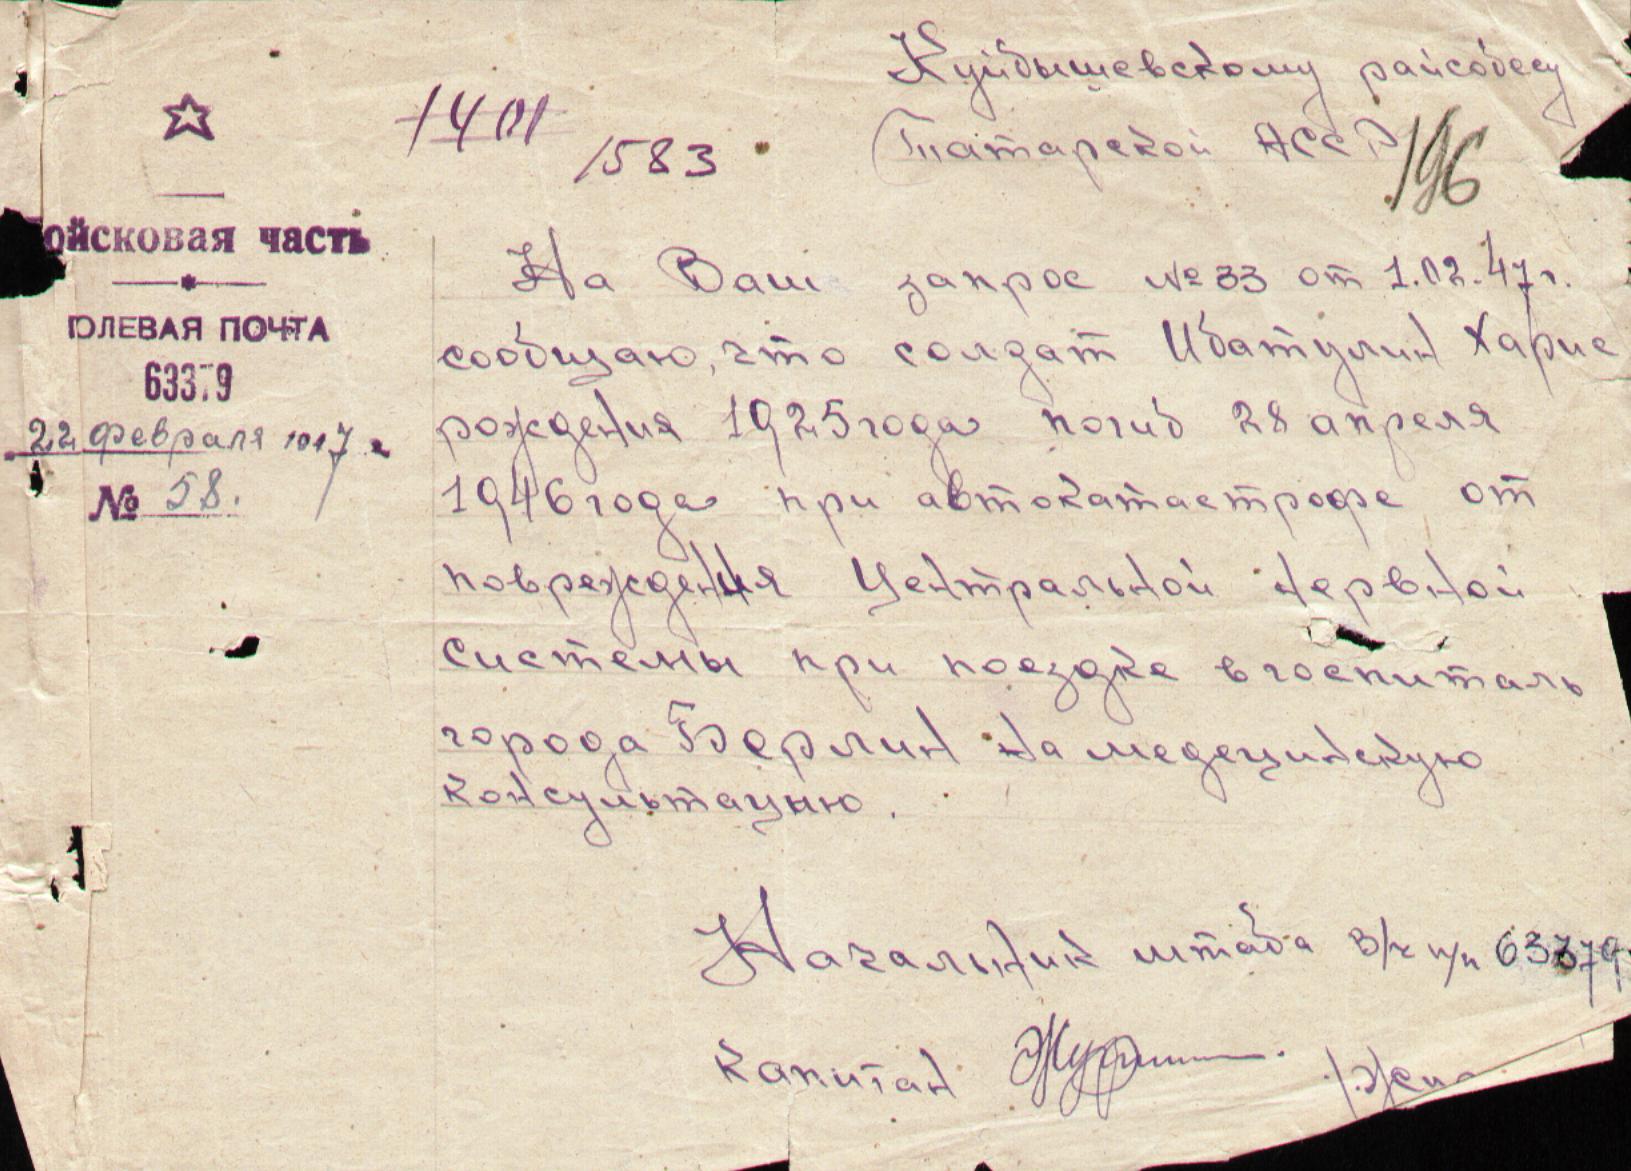 Куйбышевскому райсобесу
Татарской АССР
1401
1583
196
ойсковая часть
ОЛЕВАЯ ПОЧТА
63379
22 февраля 1947 г
№ 58.
На Ваш запрос № 33 от 1.02.47г.
сообщаю, что солдат Ибатулин Харис
рождения 1925 года погиб 28 апреля
1946 года при автокатастрофе от
повреждения Центральной нервной
системы при поездке в госпиталь
города Берлин на медецинскую
консультацию.
Начальник штаба В/ч п/п 63379
капитан